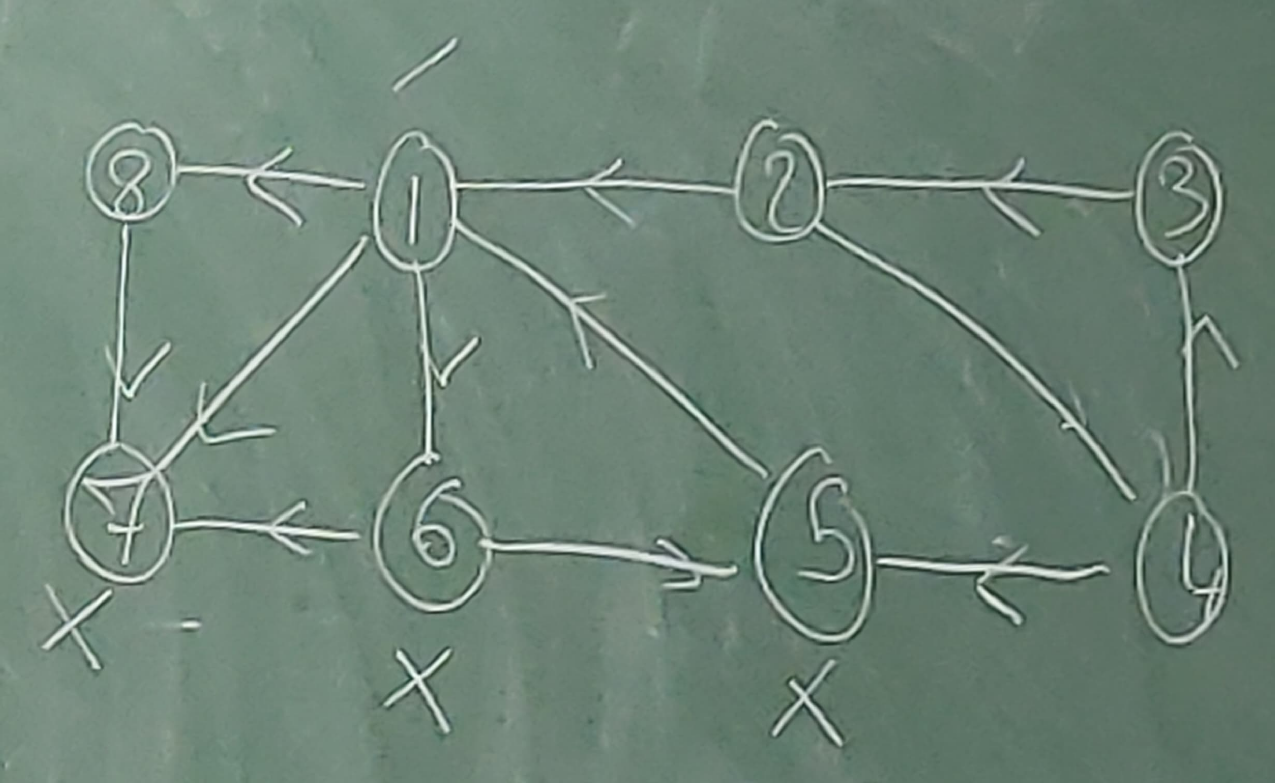 8 1 2 3
7 6 5 4
X X X